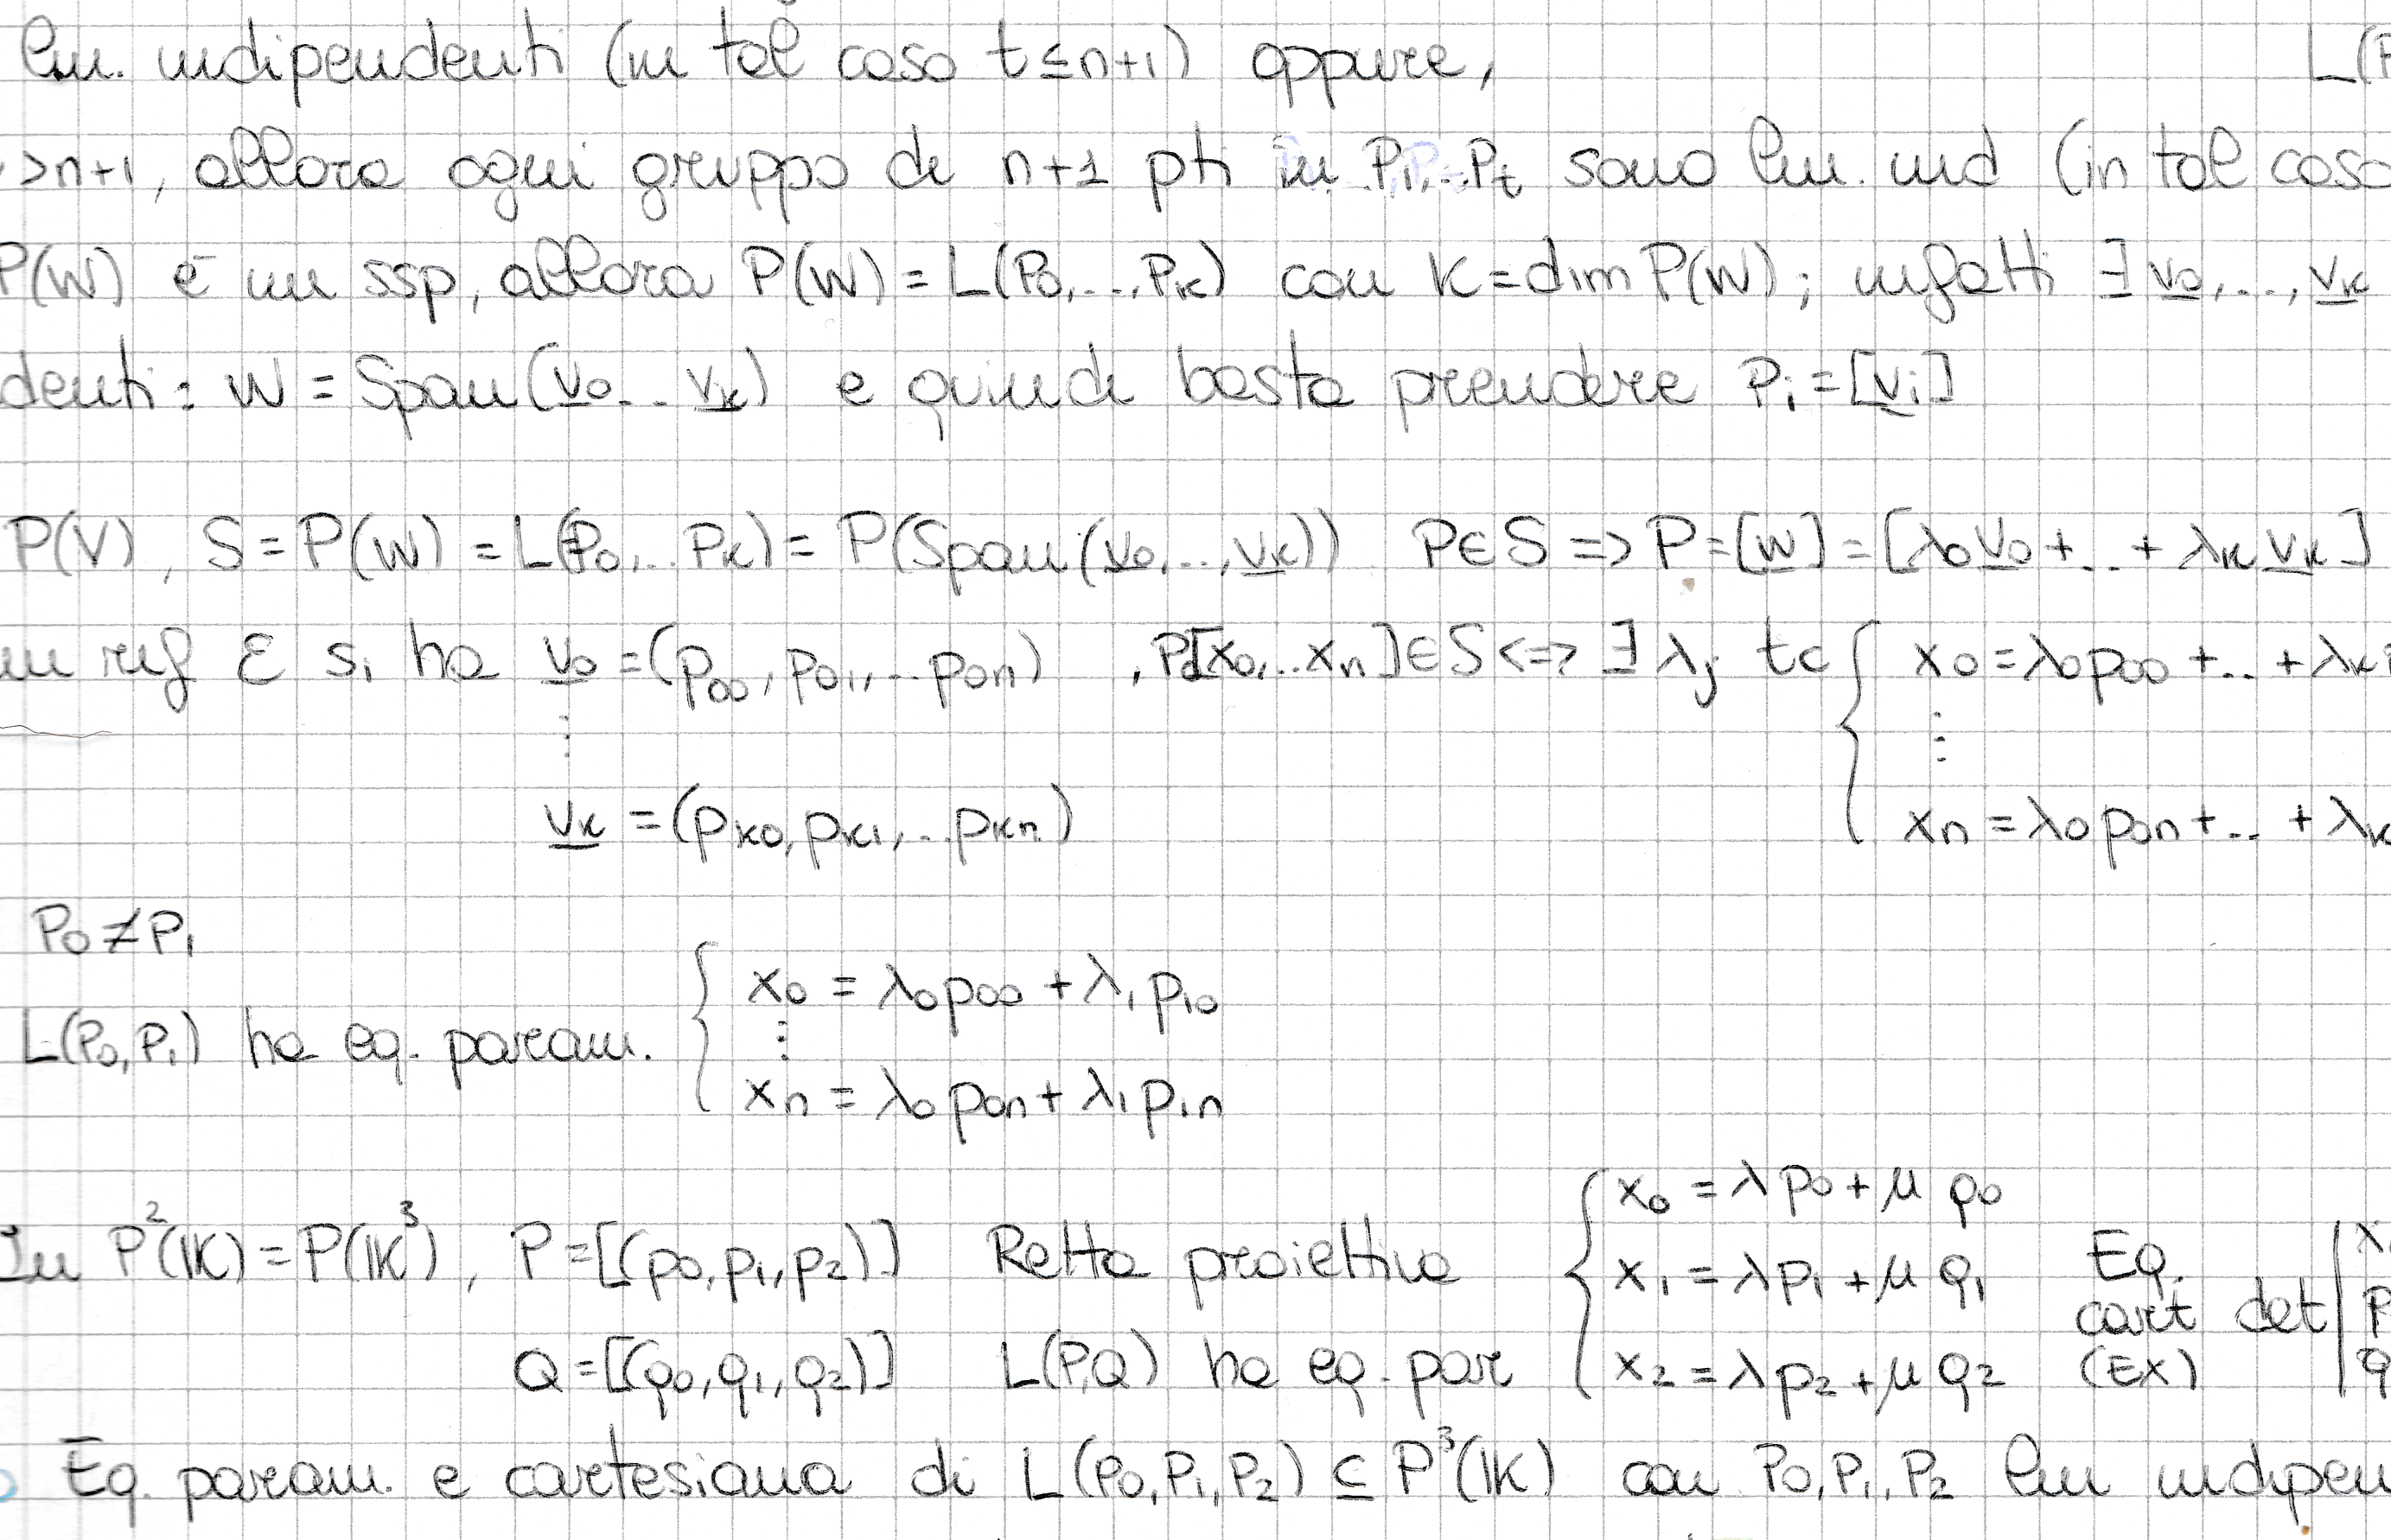 lin. indipendenti (in tal caso t ≤ n+1) oppure, L(P
>n+1, allora ogni gruppo di n+1 pti in P1,..Pt sono lin. ind (in tal caso
P(W) è un ssp, allora P(W) = L(P0,...,Pk) con k = dim P(W); infatti ∃ v0,...,vk
denti: W = Span(v0.. vk) e quindi basta prendere Pi = [vi]
P(V), S = P(W) = L(P0,.. Pk) = P(Span(v0,..,vk)) P∈S => P = [w] = [λ0v0+..+λkvk]
un rif E si ha v0 = (p00, p01,..p0n) , P[x0,..xn]∈S <=> ∃ λj tc { x0 = λ0p00 +.. + λk
⋮ ⋮
vk = (pk0, pk1,..pkn) xn = λ0p0n +.. + λk
P0 ≠ P1
{ x0 = λ0p00 + λ1p10
L(P0,P1) ha eq. param. ⋮
xn = λ0p0n + λ1p1n
{ x0 = λp0 + μq0
In P²(K) = P(K³), P = [(p0,p1,p2)] Retta proiettiva x1 = λp1 + μq1 Eq. cart det | x
P
Q = [(q0,q1,q2)] L(P,Q) ha eq. par x2 = λp2 + μq2 (EX) q
Eq. param. e cartesiana di L(P0,P1,P2) ⊆ P³(K) con P0,P1,P2 lin indipen